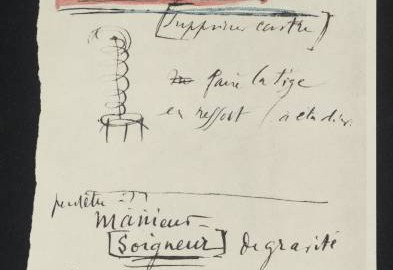 [Supprimer centre]
faire la tige
en ressort (à étudier.
peut être -??
Manieur
[Soigneur] de gravité